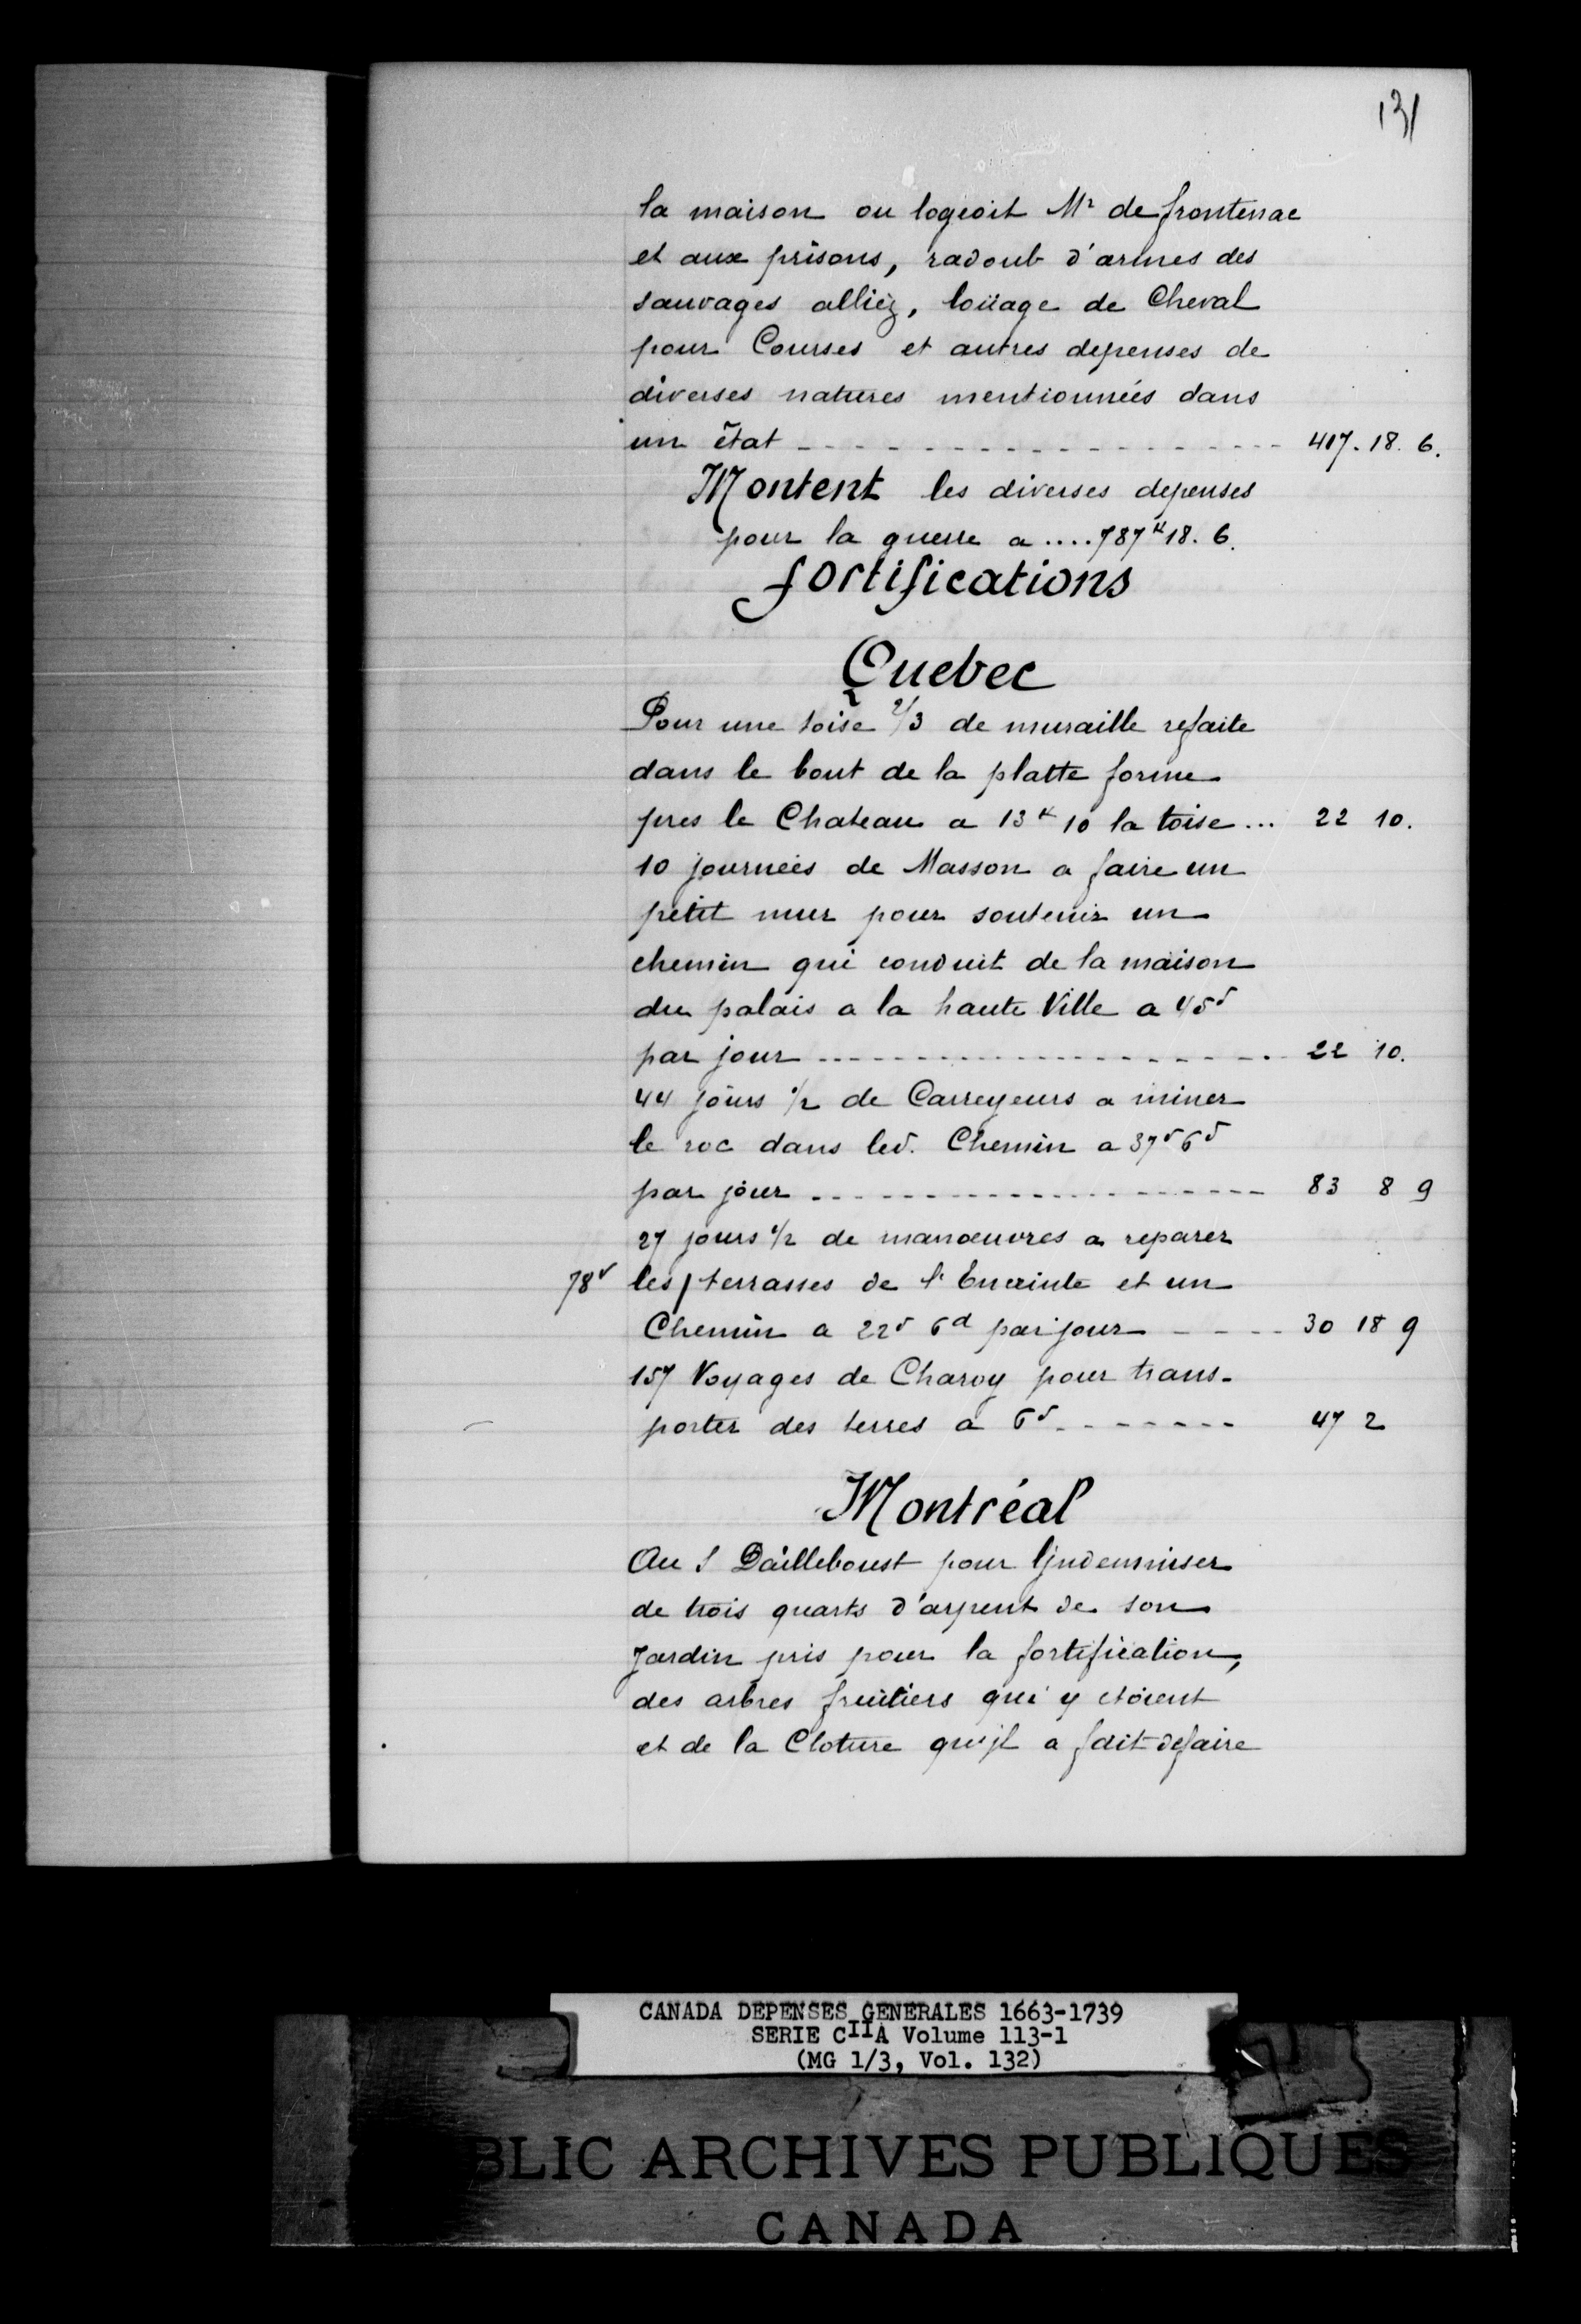 131
la maison ou logeoit Mr de frontenac
et aux prisons, radoub d'armes des
sauvages alliéz, loüage de Cheval
pour Courses et autres depenses de
diverses natures mentionnées dans
un état -------------------- 417. 18. 6.
Montent les diverses depenses
pour la guerre a .... 787# 18. 6.
fortifications
Quebec
Pour une toise 2/3 de muraille refaite
dans le bout de la platte forme
pres le Chateau a 13# 10 la toise ... 22 10.
10 journées de Masson a faire un
petit mur pour soutenir un
chemin qui conduit de la maison
du palais a la haute Ville a 45s
par jour -------------------- 22 10.
44 jours 1/2 de Carreyeurs a miner
le roc dans led. Chemin a 37s 6d
par jour -------------------- 83 8 9
27 jours 1/2 de manœuvres a reparer
78v les / terrasses de l'Enceinte et un
Chemin a 22s 6d par jour ---- 30 18 9
157 Voyages de Charoy pour trans-
porter des terres a 6s ------- 47 2
Montréal
Au S Dailleboust pour l'jndemniser
de trois quarts d'arpent de son
Jardin pris pour la fortification,
des arbres fruitiers qui y etoient
et de la Cloture qu'jl a fait defaire
CANADA DEPENSES GENERALES 1663-1739
SERIE CIIA Volume 113-1
(MG 1/3, Vol. 132)
BLIC ARCHIVES PUBLIQUES
CANADA